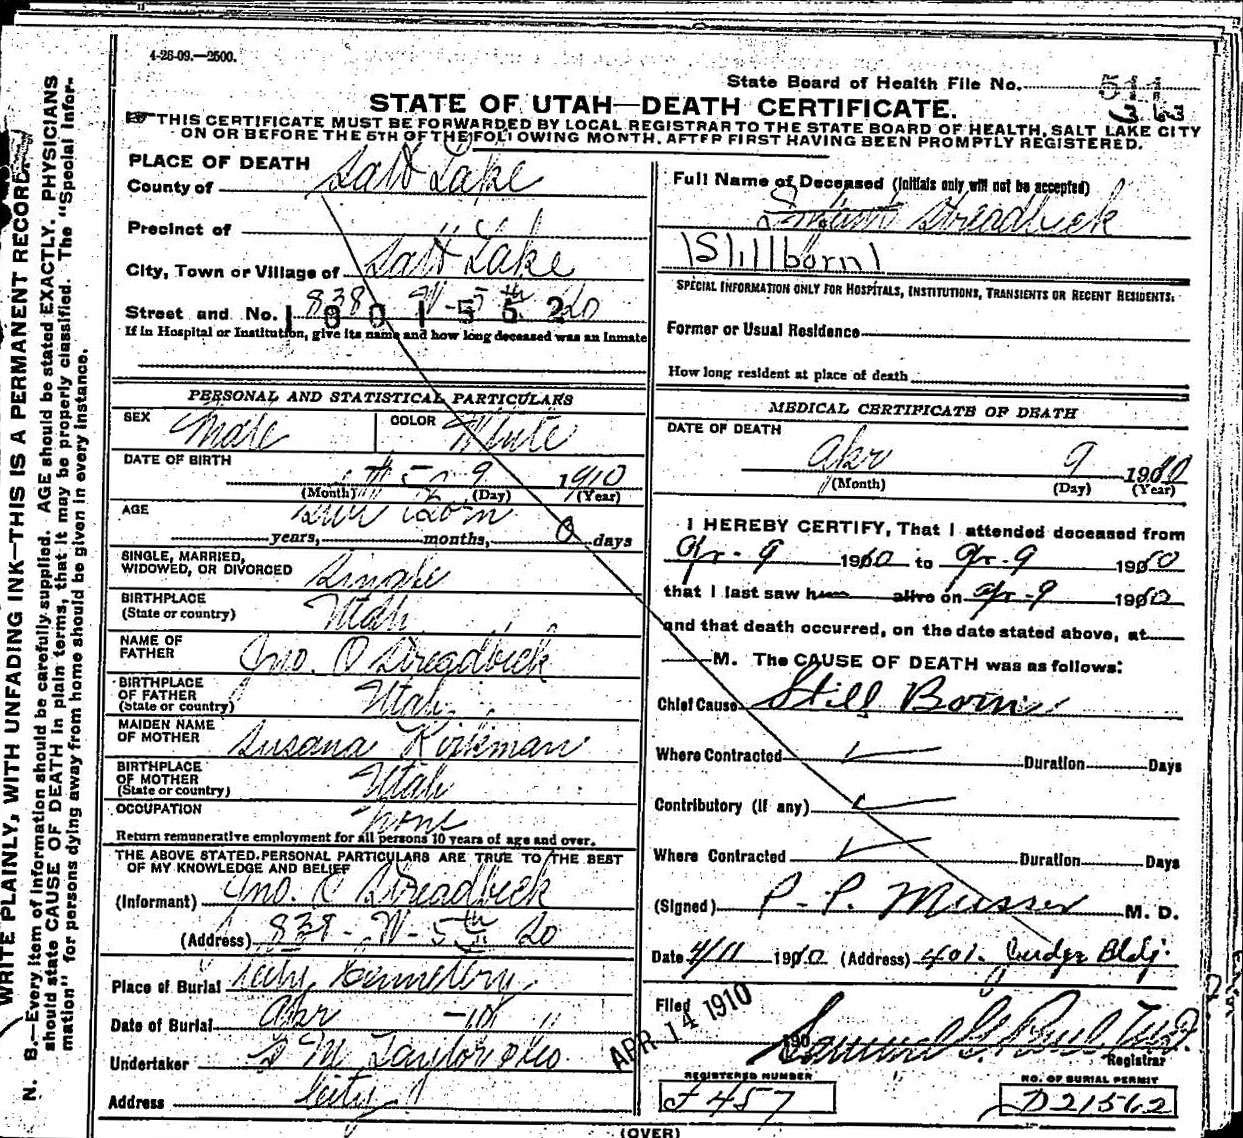 4-26-09.—2500.
State Board of Health File No.
363
STATE OF UTAH—DEATH CERTIFICATE.
THIS CERTIFICATE MUST BE FORWARDED BY LOCAL REGISTRAR TO THE STATE BOARD OF HEALTH, SALT LAKE CITY
ON OR BEFORE THE 5TH OF THE FOLLOWING MONTH, AFTER FIRST HAVING BEEN PROMPTLY REGISTERED.
PLACE OF DEATH
County of Salt Lake
Precinct of
City, Town or Village of Salt Lake
Street and No. 838 W-5th So
1001552
If in Hospital or Institution, give its name and how long deceased was an inmate
Full Name of Deceased (Initials only will not be accepted)
Infant Streadbeck
(Stillborn)
SPECIAL INFORMATION ONLY FOR HOSPITALS, INSTITUTIONS, TRANSIENTS OR RECENT RESIDENTS:
Former or Usual Residence
How long resident at place of death
PERSONAL AND STATISTICAL PARTICULARS
SEX Male COLOR White
DATE OF BIRTH 9 1910
(Month) (Day) (Year)
AGE Still Born
years, months, 0 days
SINGLE, MARRIED,
WIDOWED, OR DIVORCED Single
BIRTHPLACE
(State or country) Utah
NAME OF
FATHER Jno. O Streadbeck
BIRTHPLACE
OF FATHER
(State or country) Utah
MAIDEN NAME
OF MOTHER Susana Kirkman
BIRTHPLACE
OF MOTHER
(State or country) Utah
OCCUPATION none
Return remunerative employment for all persons 10 years of age and over.
THE ABOVE STATED PERSONAL PARTICULARS ARE TRUE TO THE BEST
OF MY KNOWLEDGE AND BELIEF
(Informant) Jno. O Streadbeck
(Address) 838 - W-5th So
Place of Burial City Cemetery
Date of Burial Apr -10
Undertaker S M Taylor & Co
Address City
MEDICAL CERTIFICATE OF DEATH
DATE OF DEATH
Apr 9 1910
(Month) (Day) (Year)
I HEREBY CERTIFY, That I attended deceased from
Apr - 9 1910 to Apr - 9 1910
that I last saw him alive on Apr - 9 1910
and that death occurred, on the date stated above, at
M. The CAUSE OF DEATH was as follows:
Chief Cause Still Born
Where Contracted Duration Days
Contributory (if any)
Where Contracted Duration Days
(Signed) P. P. Musser M. D.
Date 4/11 1910 (Address) 401. Judge Bldg.
Filed APR 14 1910 190
Registrar
REGISTERED NUMBER
F 457
NO. OF BURIAL PERMIT
D21562
(OVER)
WRITE PLAINLY, WITH UNFADING INK—THIS IS A PERMANENT RECORD.
N. B.—Every item of information should be carefully supplied. AGE should be stated EXACTLY. PHYSICIANS
should state CAUSE OF DEATH in plain terms, that it may be properly classified. The "Special Infor-
mation" for persons dying away from home should be given in every instance.